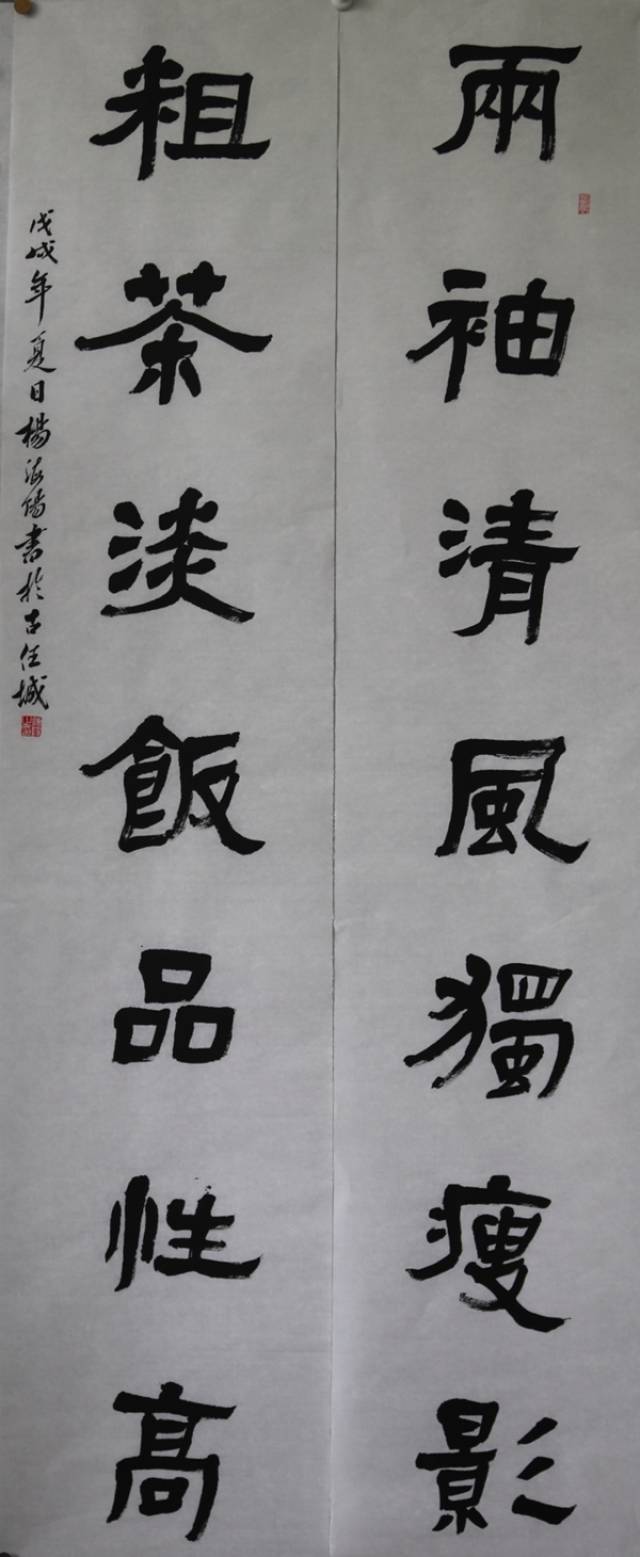 兩袖清風獨瘦影
粗茶淡飯品性高
戊戌年夏日楊海陽書於古任城